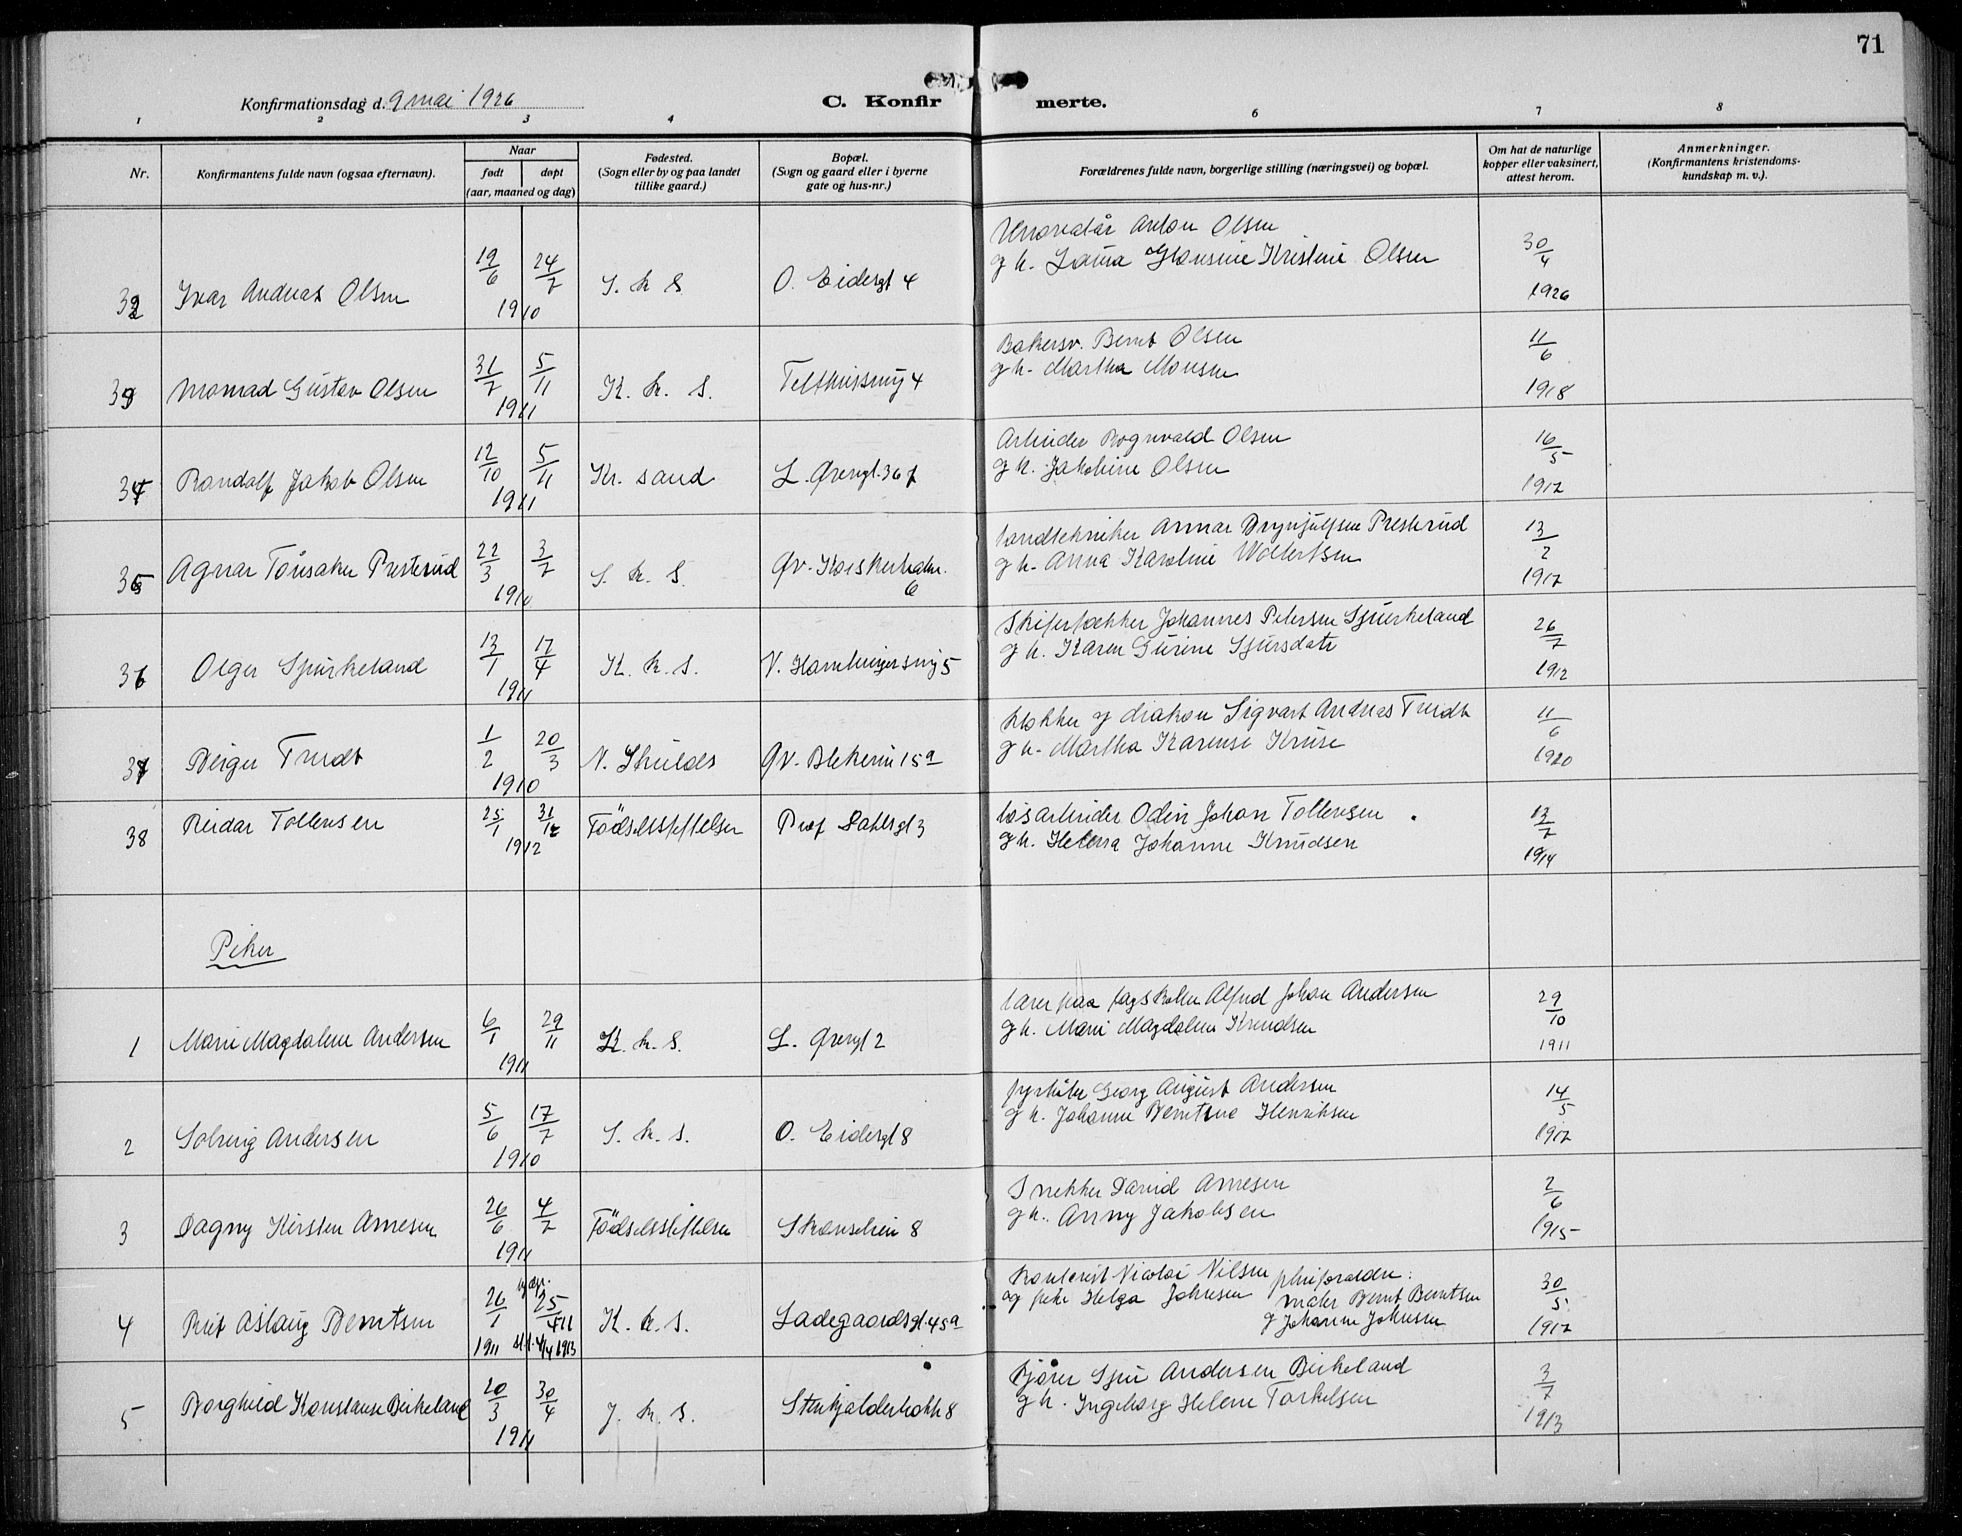 71
Konfirmationsdag d. 9 mai 1926
C. Konfirmerte.
1 2 3 4 6 7 8
Nr.
Konfirmantens fulde navn (ogsaa efternavn).
Naar
født døpt
(aar, maaned og dag)
Fødested.
(Sogn eller by og paa landet
tillike gaard.)
Bopæl.
(Sogn og gaard eller i byerne
gate og hus-nr.)
Forældrenes fulde navn, borgerlige stilling (næringsvei) og bopæl.
Om hat de naturlige
kopper eller vaksinert,
attest herom.
Anmerkninger.
(Konfirmantens kristendoms-
kundskap m. v.).
32 Ivar Andreas Olsen 19/6 24/7 1910 S. k. S O. Eidersgt 4
Anton Olsen
g h. Laura Kristine Olsen
30/4 1926
33 Gustav Olsen 31/7 5/11 1911 K. k. S. 4
Bakersv. Bernt Olsen
g h. Martha Monsen
11/6 1918
34 Randolf Jakob Olsen 12/10 5/11 1911 Kr. sand L. Øvregt. 36
Arbeider Rognvald Olsen
g h. Jakobine Olsen
16/5 1912
35 Agnar Tönsaker Presterud 22/3 3/7 1910 S. k. S. Øv. 6
landtekniker Annar Brynjulfsen Presterud
g h. Anna Karoline Wollertsen
13/2 1917
36 Olger Spurkeland 13/1 17/4 1911 K. k. S. 5
Johannes Petersen Spurkeland
g h. Karen Gurine Sjursdatr
26/7 1912
37 Birger Trædt 1/2 20/3 1910 N. Skulds Øv. Blekevei 15 a
klokker og diakon Sigvart Andreas Trædt
g h. Martha Karense Kruse
11/6 1920
38 Reidar Tollevsen 25/1 31/12 1912 Födselsstiftelsen Prof Dahlsgt 3
løsarbeider Odin Johan Tollevsen
g h. Helena Johanne Knudsen
13/7 1914
Piker
1 Marie Magdalene Andersen 6/1 29/11 1911 K. k. S. L. Øvregt 2
lærer paa fagskolen Alfred Johan Andersen
g h. Marie Magdalene Knudsen
29/10 1911
2 Solveig Andersen 5/6 17/7 1910 S. k. S. O. Eidersgt 8
fyrbøter Georg August Andersen
g h. Johanne Berntine Henriksen
14/5 1912
3 Dagny Kirsten Arnesen 26/6 4/7 1911 Födselsstiftelsen Skanselien 8
Snekker David Arnesen
g h. Anny Jakobsen
2/6 1915
4 Rut Aslaug Berntsen 26/1 1911 25 1913 K. k. S. Ladegaardsgt. 45 a
Kontorist Nicolai Nilsen pleieforældre:
og Helga Johnsen Bernt Berntsen
g Johanne Johnsen
30/5 1912
5 Borghild Konstanse Birkeland 20/3 30/4 1911 J. k. S. Stenkjelderbakk 8
Andersen Birkeland
g h. Ingeborg Helene Torkelsen
3/7 1913